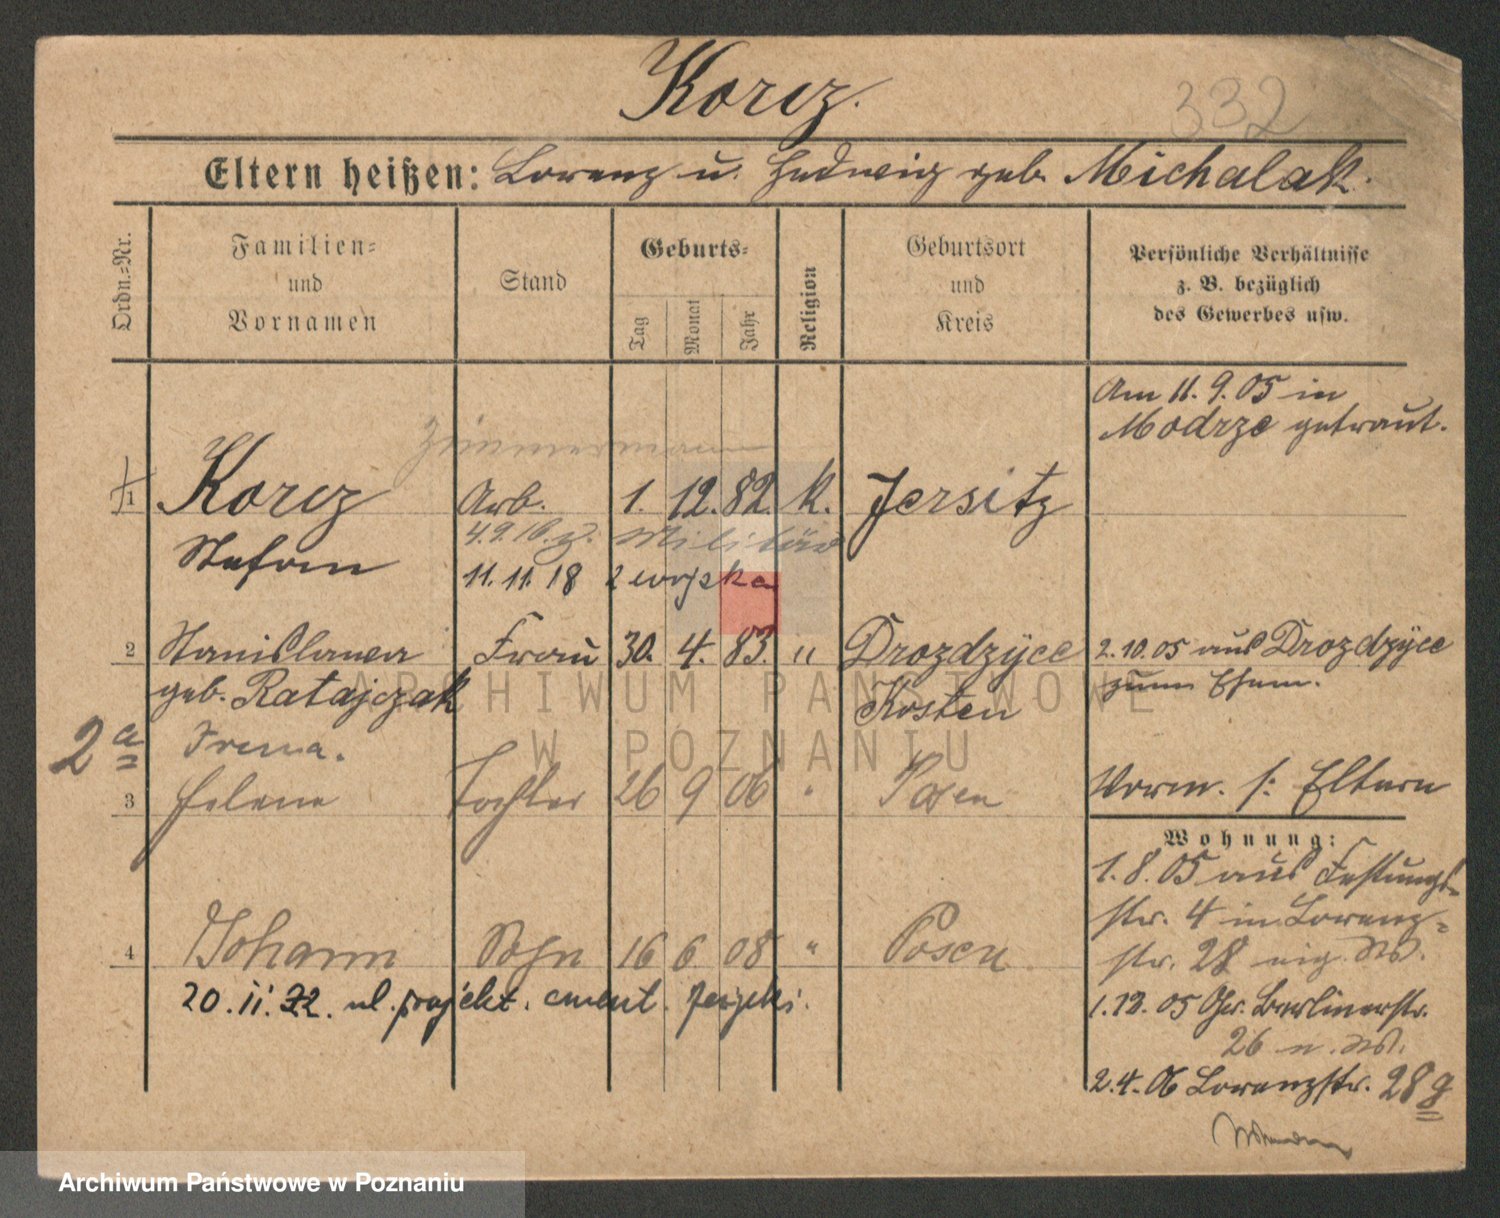 Korcz.
332
Eltern heißen: Lorenz u. Hedwig geb. Michalak.
Ordn.=Nr.
Familien=
und
Vornamen
Stand
Geburts=
Tag
Monat
Jahr
Religion
Geburtsort
und
Kreis
Persönliche Verhältnisse
z. B. bezüglich
des Gewerbes usw.
Am 11. 9. 05 in
Modrze getraut.
Zimmermann
1 Korcz Arb. 1. 12. 82. k. Jersitz
Militär
Stefan 11. 11. 18 z wojska
2 Stanislawa Frau 30. 4. 83. " Drozdzyce 2. 10. 05 aus Drozdzyce
geb. Ratajczak Kosten zum Ehem.
2a
Irena.
3 Helene Tochter 26 9 06 " Posen Vorm. s: Eltern
Wohnung:
1. 8. 05 aus Festungs=
str. 4 in Lorenz=
4 Johann Sohn 16 6 08 " Posen str. 28
20. II. 22. ul.
1. 12. 05 Berlinerstr.
26
2. 4. 06 Lorenzstr. 28 g
ARCHIWUM PAŃSTWOWE
W POZNANIU
Archiwum Państwowe w Poznaniu